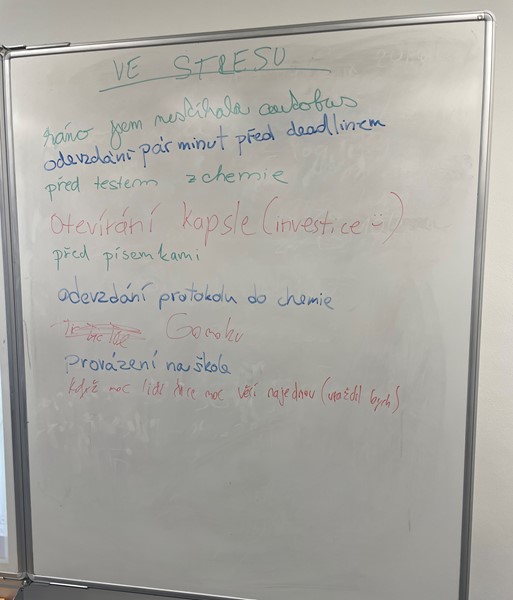 VE STRESU
ráno jsem nestíhala autobus
odevzdání pár minut před deadlinem
před testem z chemie
Otevírání kapsle (investice :-)
před písemkami
odevzdání protokolu do chemie
Gomoku
Provázení na škole
Když moc lidí chce moc věcí najednou (vraždil bych)